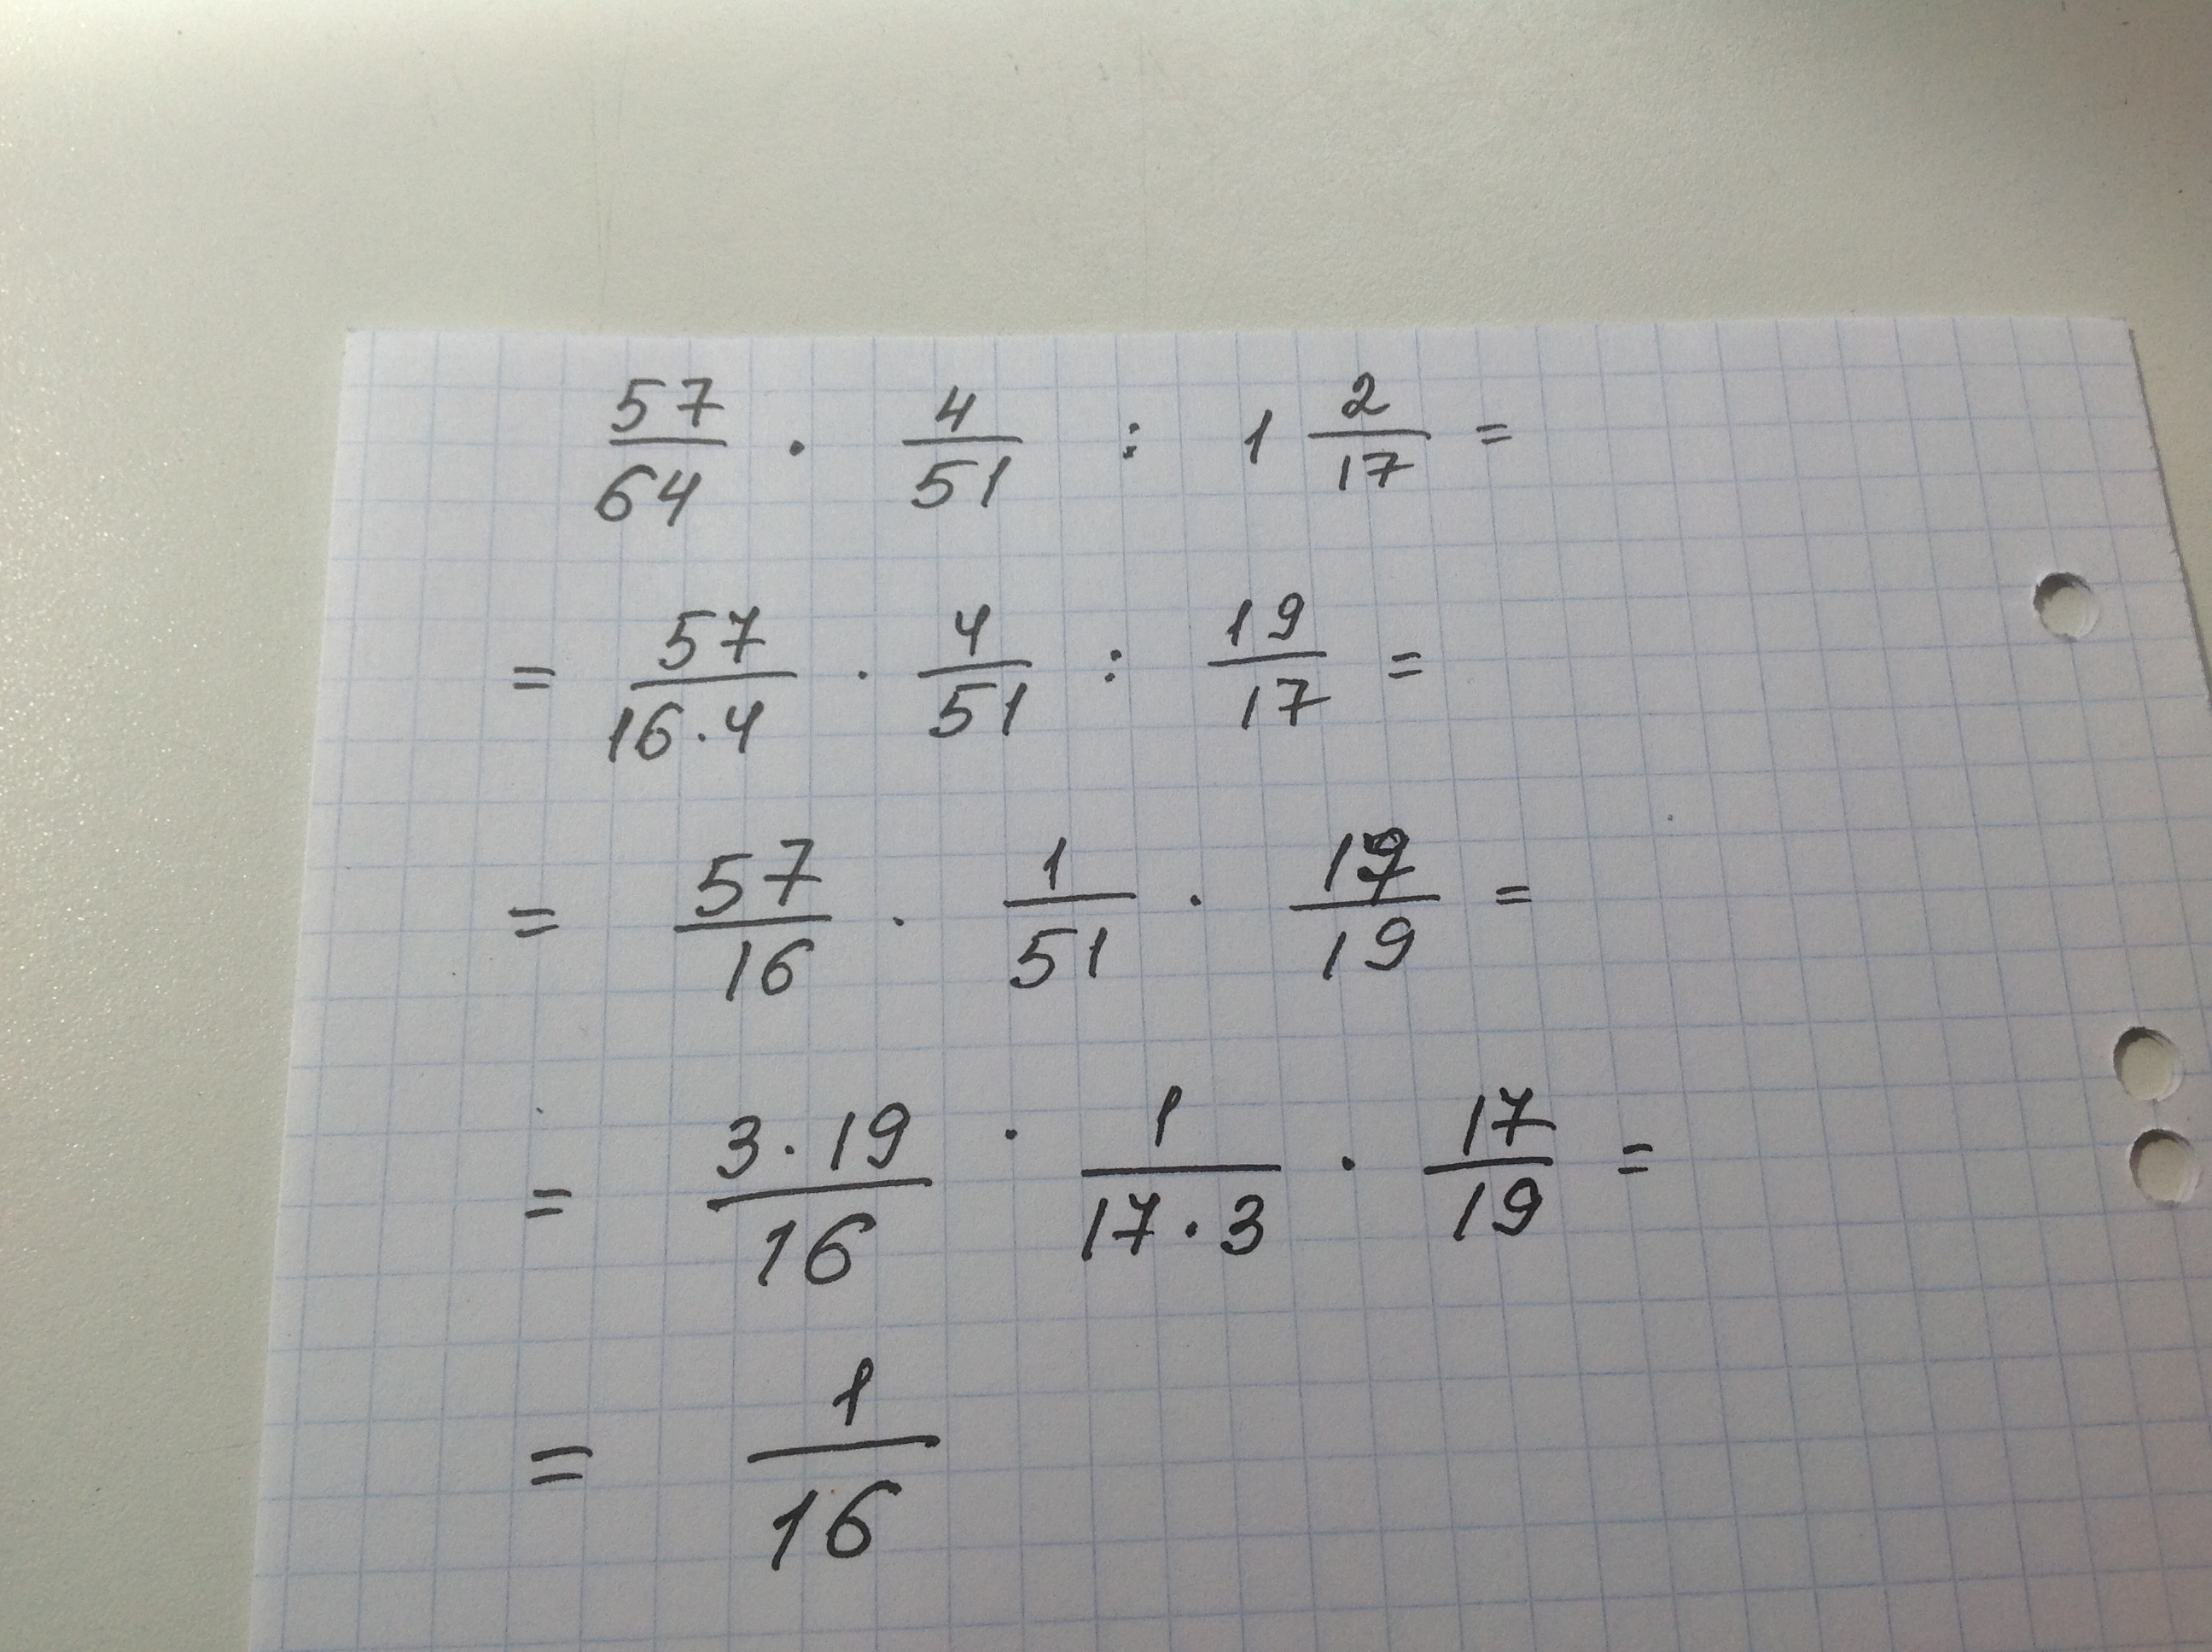 57/64 · 4/51 : 1 2/17 =
= 57/16·4 · 4/51 : 19/17 =
= 57/16 · 1/51 · 17/19 =
= 3·19/16 · 1/17·3 · 17/19 =
= 1/16